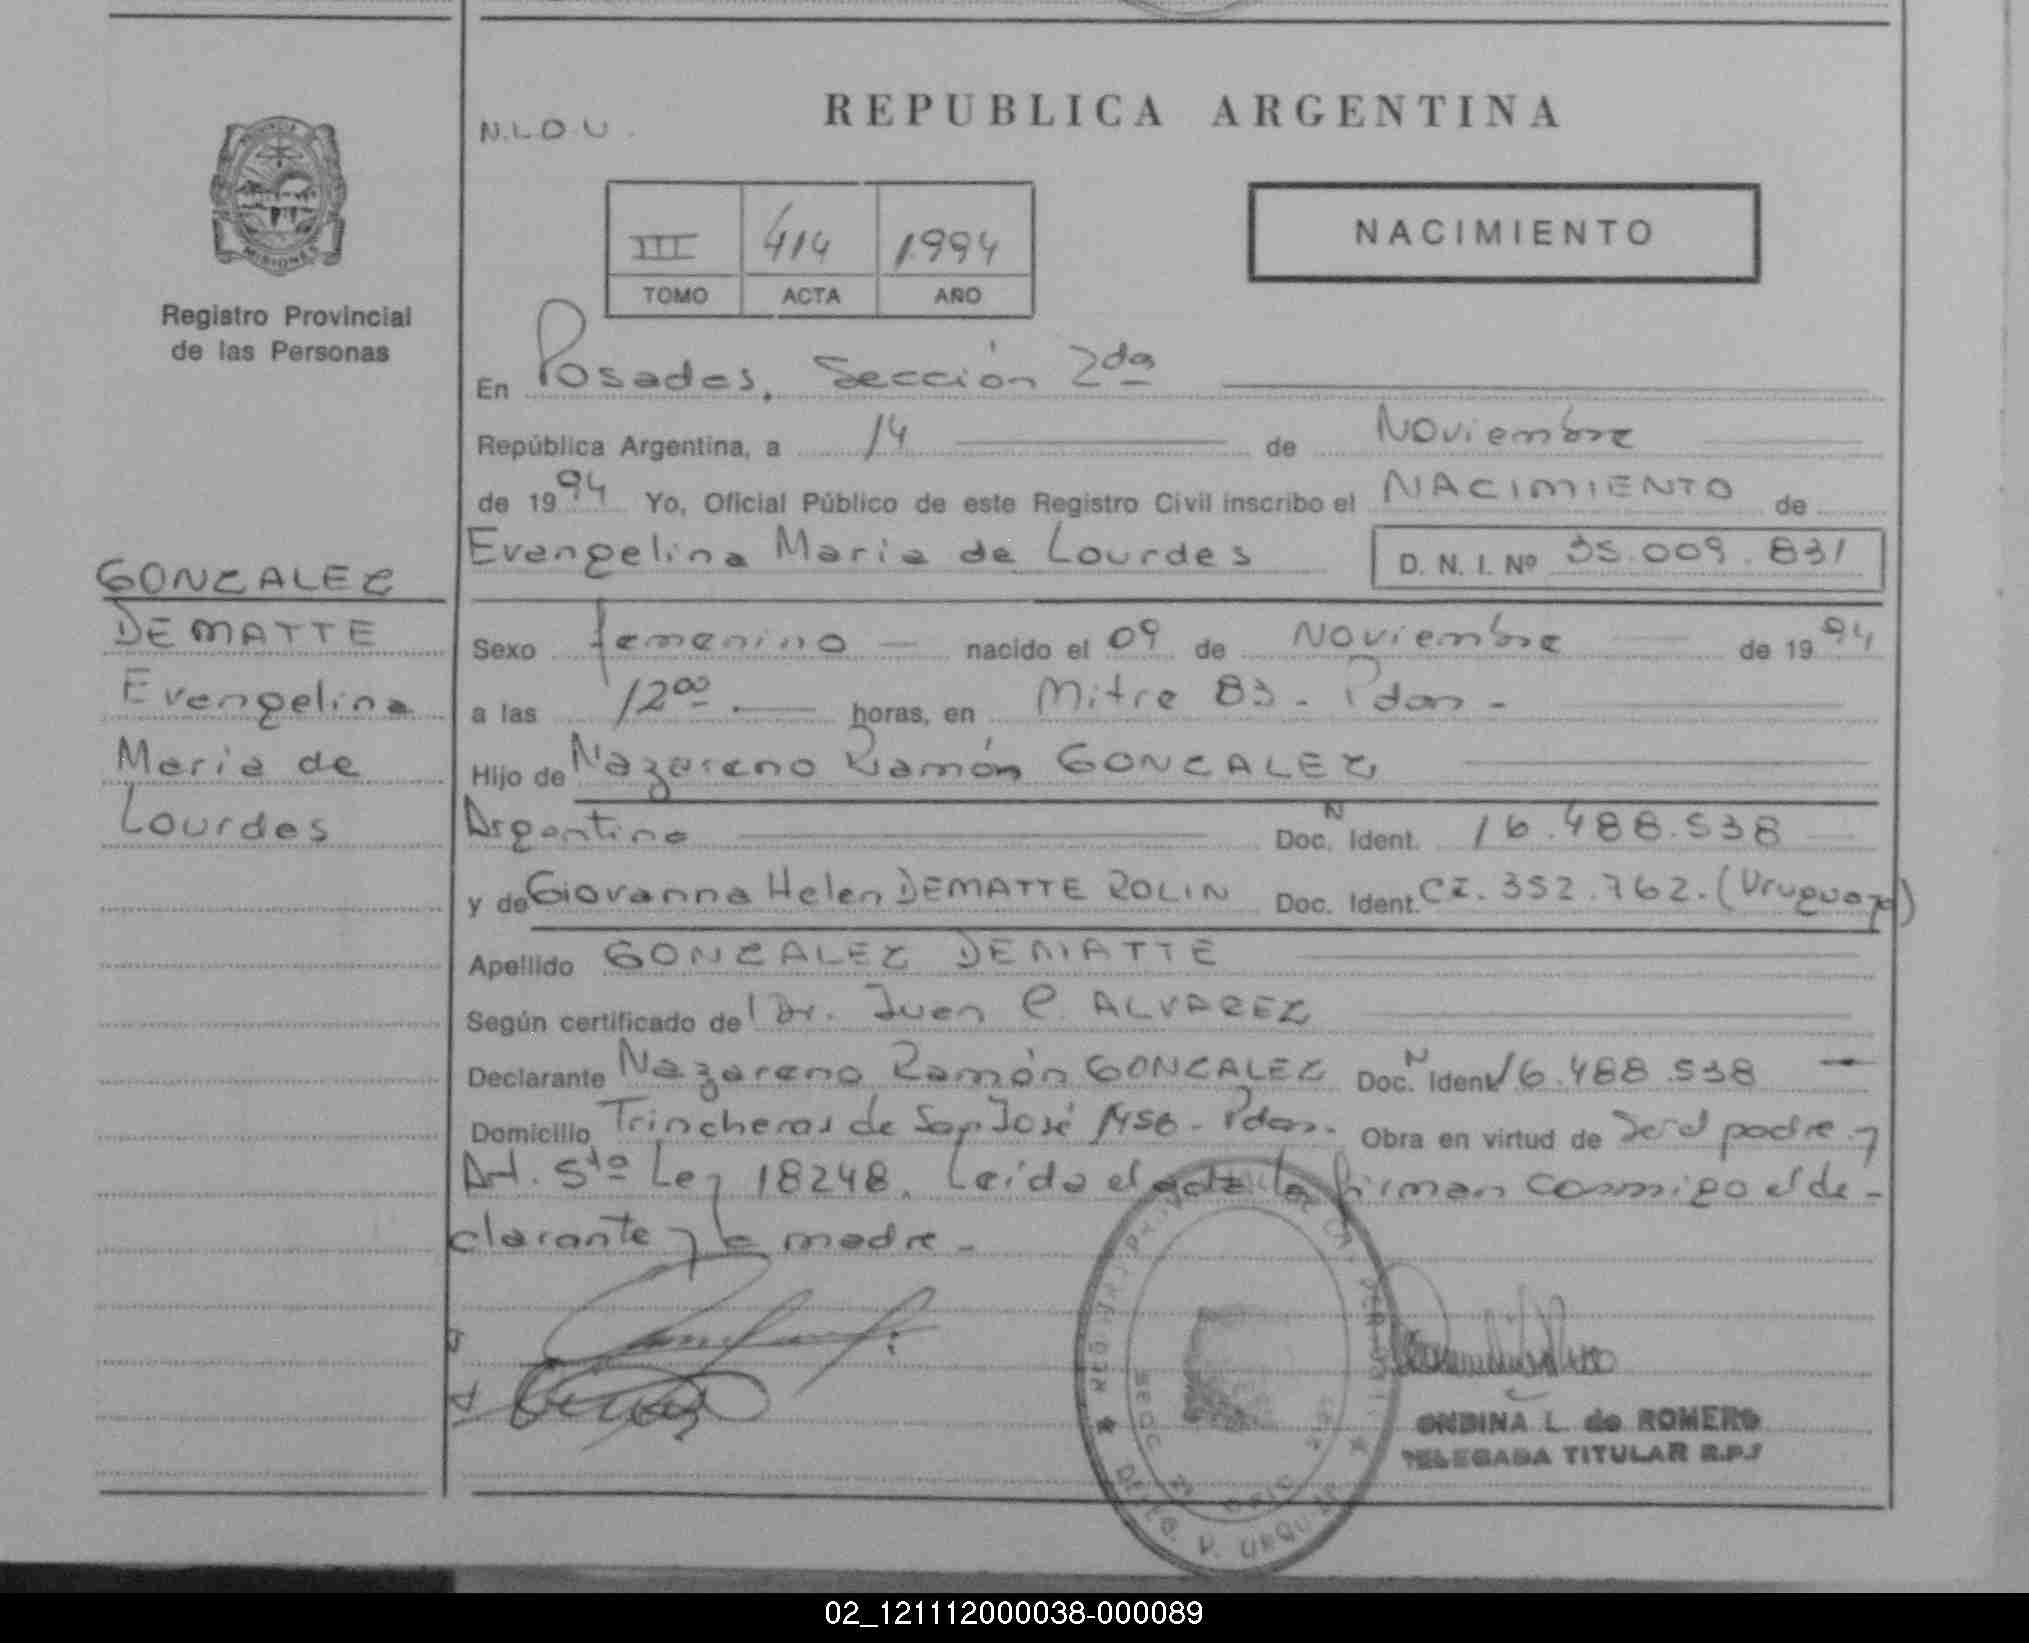 REPUBLICA ARGENTINA
N.L.O.U.
III 414 1994
TOMO ACTA AÑO
NACIMIENTO
MISIONES
Registro Provincial
de las Personas
En Posadas, Sección 2da
República Argentina, a 14 de Noviembre
de 1994 Yo, Oficial Público de este Registro Civil inscribo el NACIMIENTO de
Evangelina Maria de Lourdes D. N. I. Nº 35.009.831
GONZALEZ
DEMATTE
Evangelina
Maria de
Lourdes
Sexo femenino nacido el 09 de Noviembre de 1994
a las 12⁰⁰ horas, en Mitre 83 - Pdas -
Hijo de Nazareno Ramón GONZALEZ,
Argentino Doc. N Ident. 16.488.538
y de Giovanna Helen DEMATTE ROLIN Doc. Ident. CI. 352.762. (Uruguaya)
Apellido GONZALEZ DEMATTE
Según certificado del Dr. Juan C. ALVAREZ
Declarante Nazareno Ramón GONZALEZ Doc. N Ident 16.488.538
Domicilio Trincheras de San José - Pdas. Obra en virtud de Ser el padre y
Art. 5to Ley 18248. Leída el acta la firman conmigo el de-
clarante y la madre -
ONDINA L. de ROMERO
DELEGADA TITULAR R.P.
02_121112000038-000089